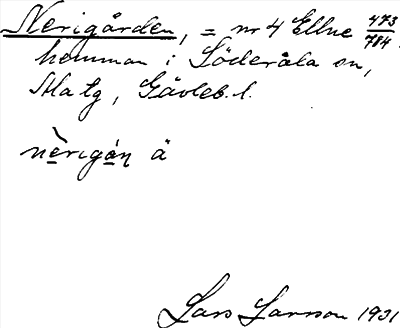 Nerigården, = nr 4 Ellne 473/784.
hemman i Söderala sn,
Ala tg, Gävleb. l.
nèrigán ä
Lars Larsson 1931